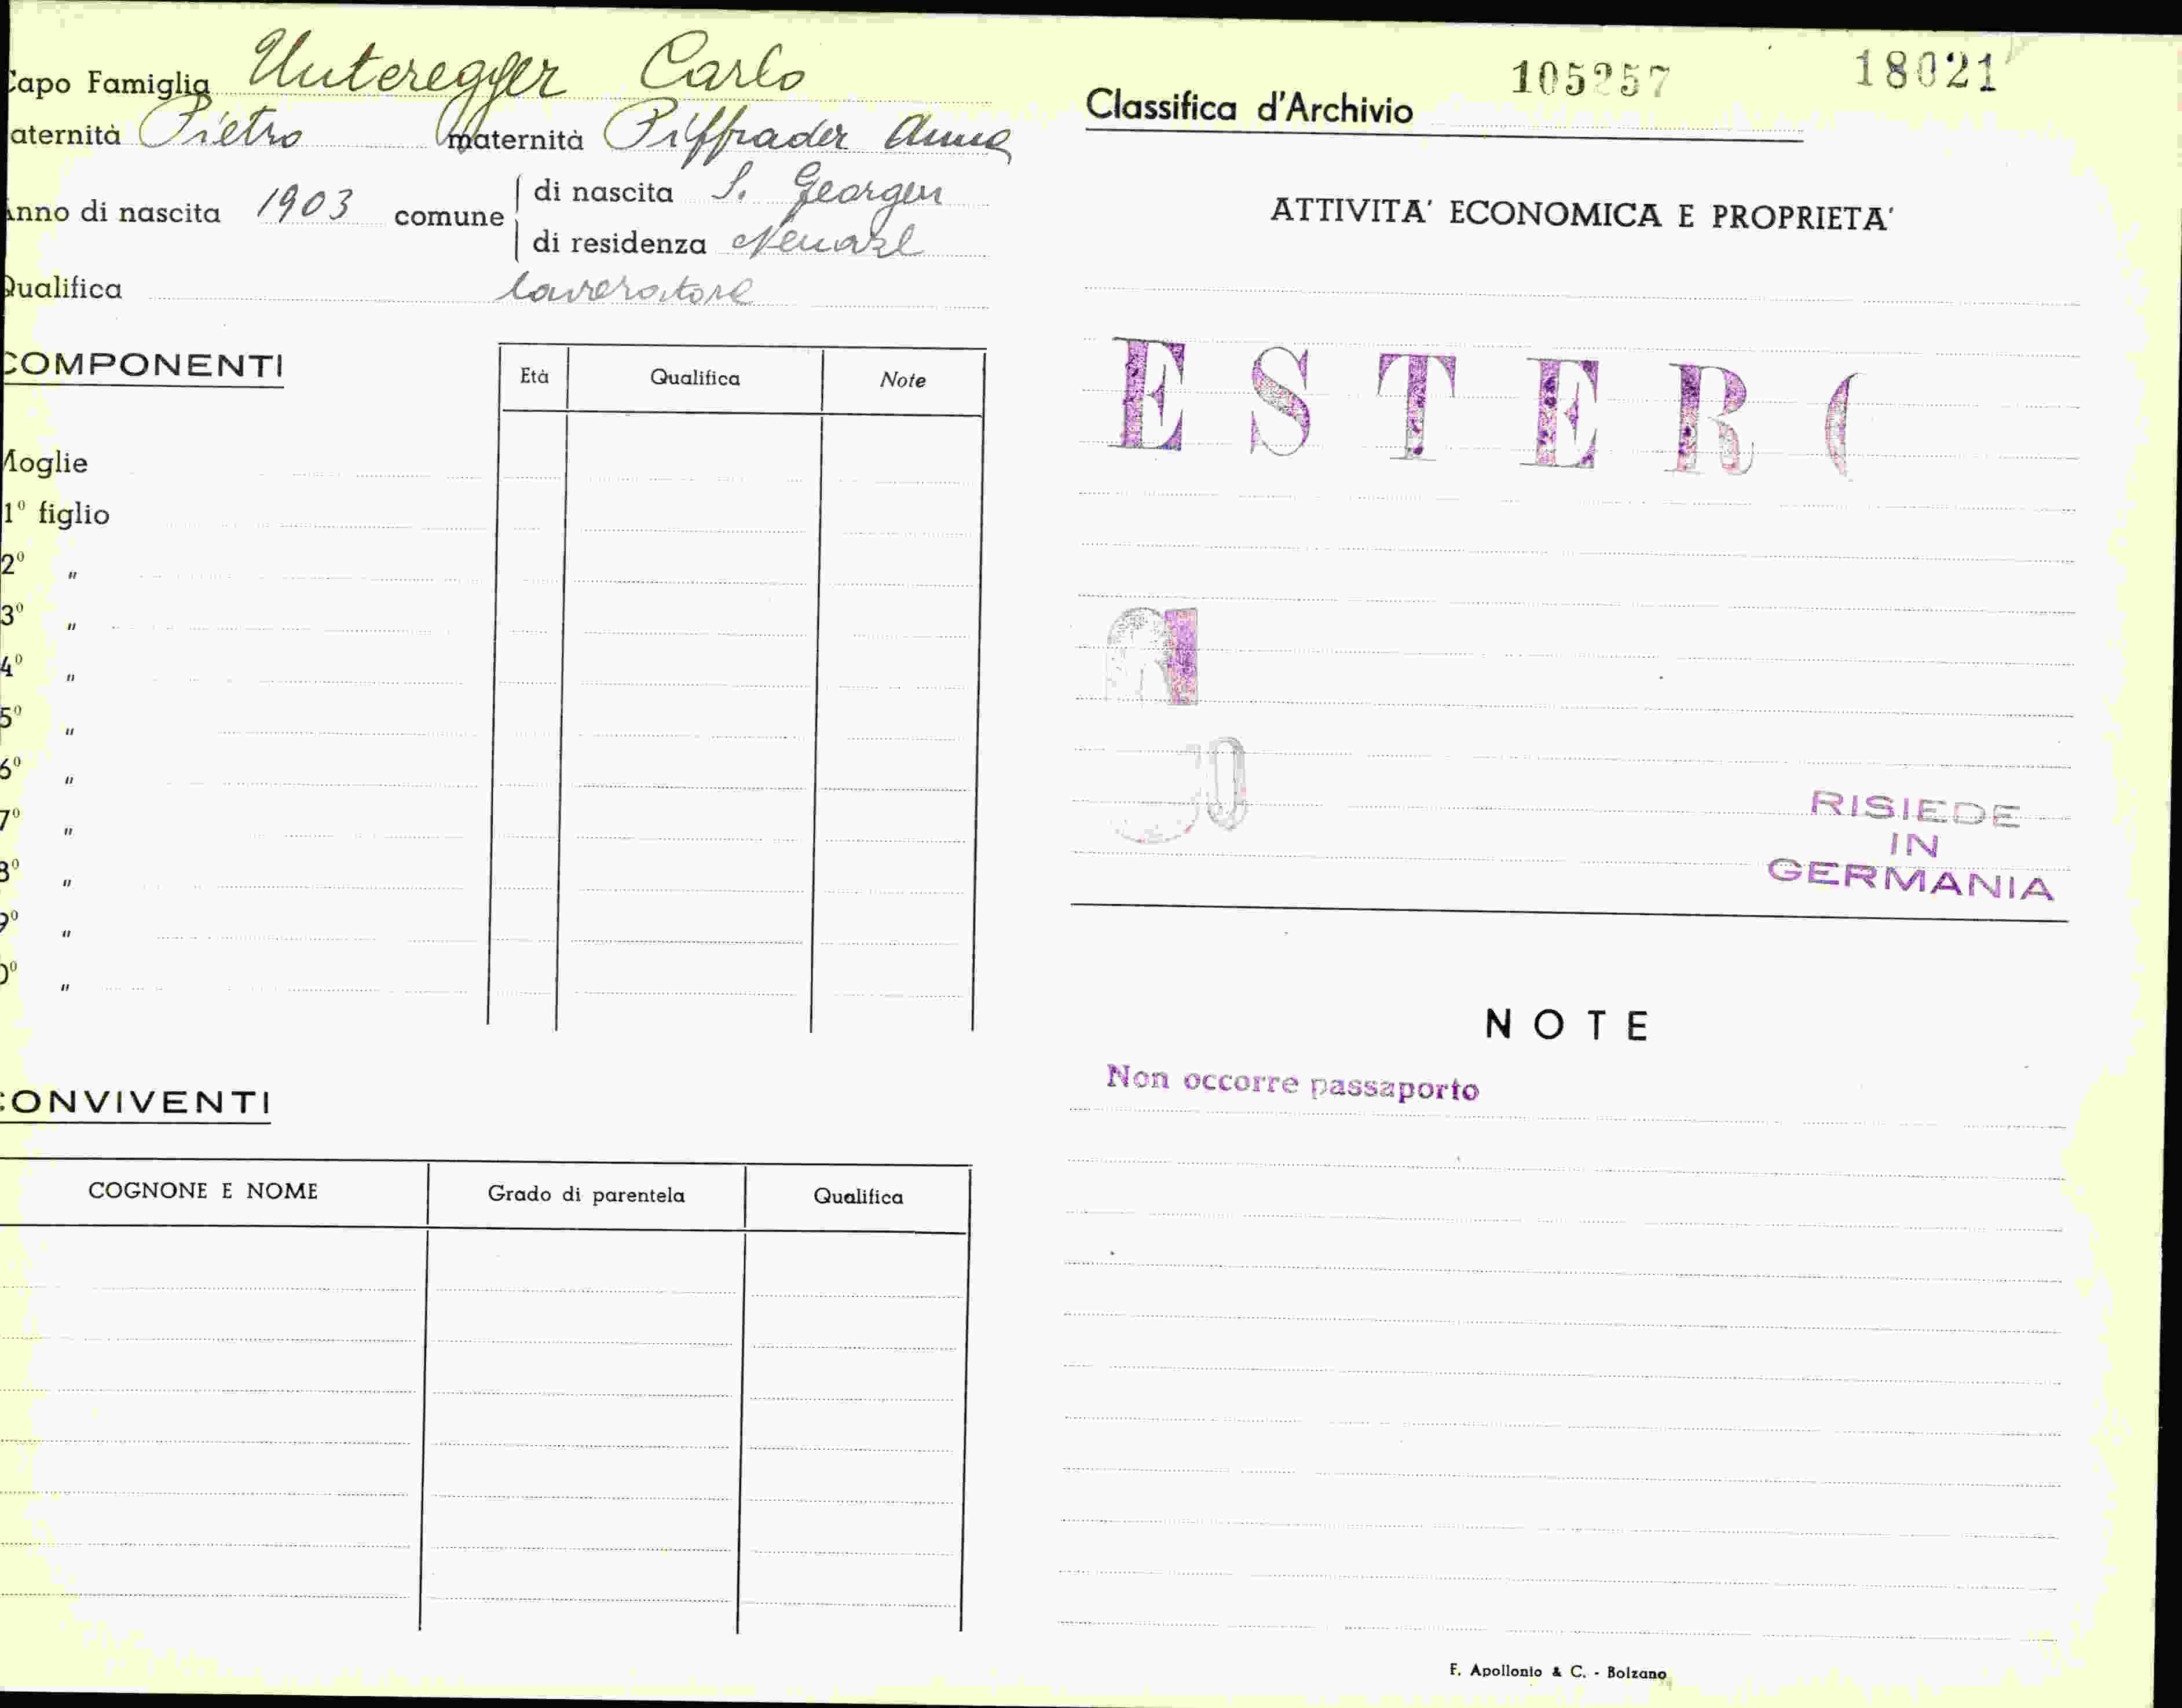 Capo Famiglia Unteregger Carlo
aternità Pietro maternità Piffrader Anna
Anno di nascita 1903 comune di nascita S. Georgen
di residenza
Qualifica lavoratore
COMPONENTI
Età Qualifica Note
Moglie
1º figlio
2º "
3º "
4º "
5º "
6º "
7º "
8º "
9º "
0º "
CONVIVENTI
COGNONE E NOME Grado di parentela Qualifica
105257 18021
Classifica d'Archivio
ATTIVITA' ECONOMICA E PROPRIETA'
ESTER
RISIEDE
IN
GERMANIA
NOTE
Non occorre passaporto
F. Apollonio & C. - Bolzano